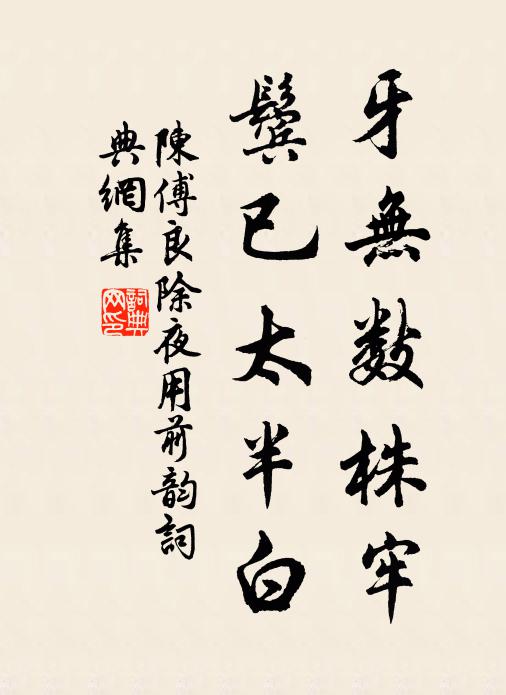 牙無數株牢
鬢已太半白
陳傅良除夜用前韵詞
典網集
詞典網印